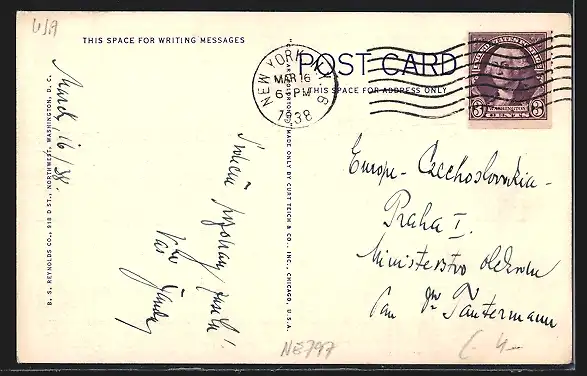 USA
THIS SPACE FOR WRITING MESSAGES
POST CARD
THIS SPACE FOR ADDRESS ONLY
NEW YORK, N.Y.
MAR 16
6-PM
1938
UNITED STATES POSTAGE
WASHINGTON
3 CENTS 3
March 16/38.
pozdravy
Váš
Europe - Czechoslovakia -
Praha I.
Ministerstvo
Pan Dr Tautermann
B. S. REYNOLDS CO., 918 D ST., NORTHWEST, WASHINGTON, D. C.
MADE ONLY BY CURT TEICH & CO., INC., CHICAGO, U.S.A.
NE797